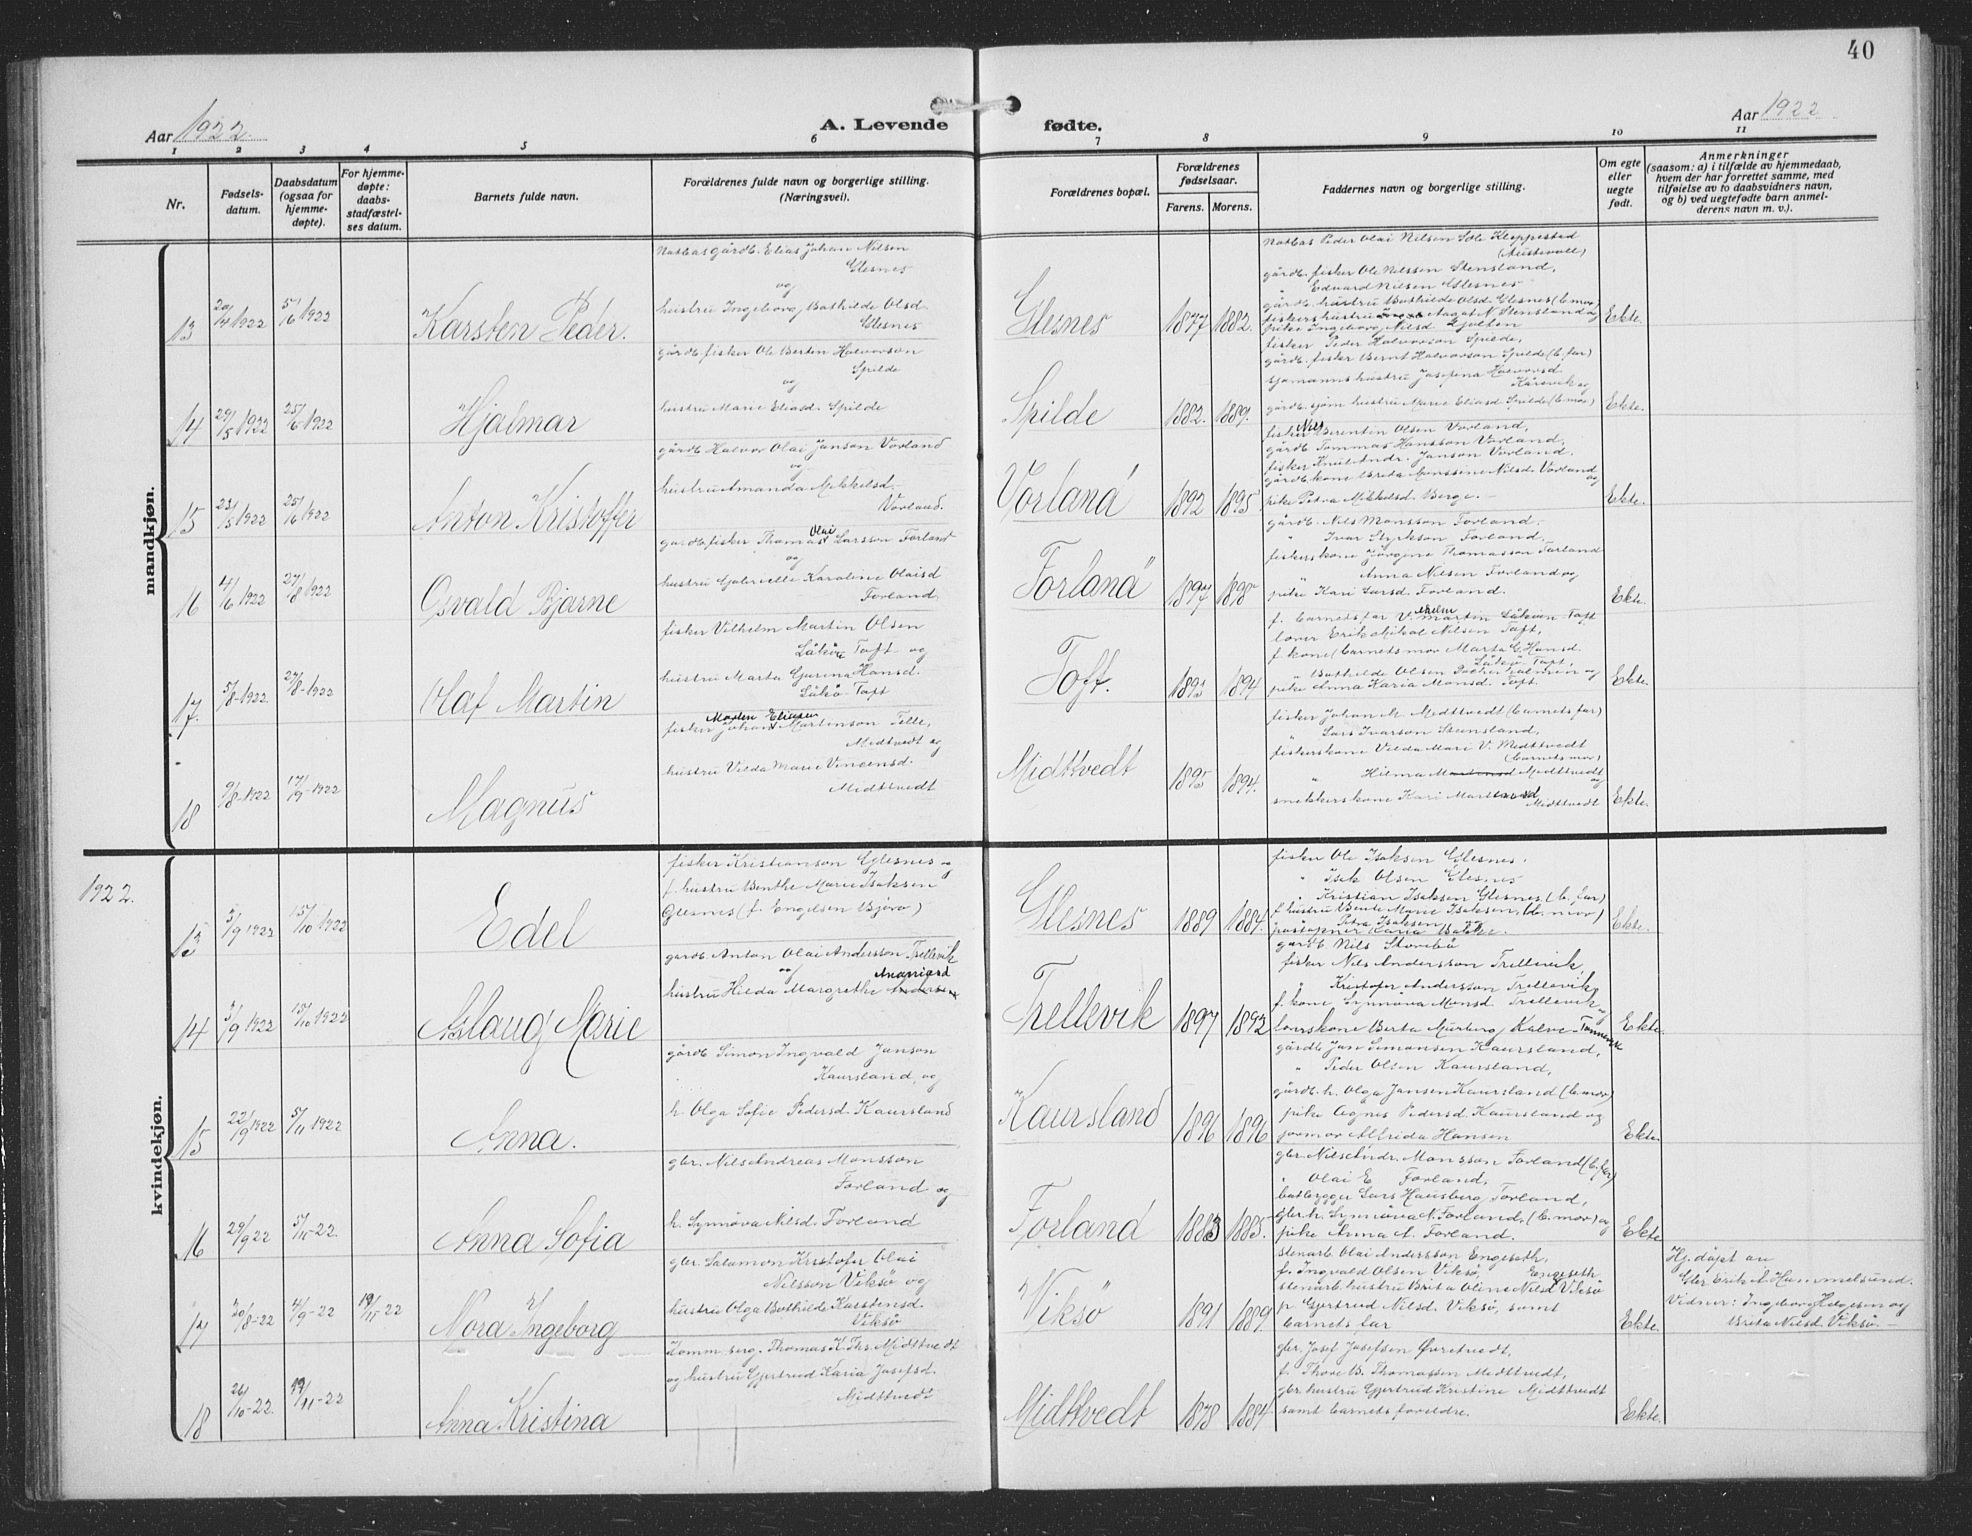 40
Aar 1922
A. Levende fødte.
Aar 1922
1 2 3 4 5 6 7 8 9 10 11
Nr.
Fødsels-
datum.
Daabsdatum
(ogsaa for
hjemme-
døpte).
For hjemme-
døpte:
daabs-
stadfæstel-
ses datum.
Barnets fulde navn.
Forældrenes fulde navn og borgerlige stilling.
(Næringsvei).
Forældrenes bopæl.
Forældrenes
fødselsaar.
Farens. Morens.
Faddernes navn og borgerlige stilling.
Om egte
eller
uegte
født.
Anmerkninger
(saasom: a) i tilfælde av hjemmedaab,
hvem der har forrettet samme, med
tilføielse av to daabsvidners navn,
og b) ved uegtefødte barn anmel-
derens navn m. v.).
mandkjøn.
13 20/4 1922 5/6 1922 Karsten Peder.
gårdb. Elias Johan Nilsen
Glesnes
og
hustru Ingeborg Bothilde Olsd
Glesnes
Glesnes 1877 1882.
Peder Olai Nilsen Kleppestad
(Austevoll)
gårdb. fisker Ole Nilssen Stensland,
" Edvard Nilsen Glesnes
gårdb. hustru Bothilde Olsd. Glesnes (b. mor)
pike Ingeborg Nilsd
Ekte.
14 29/5 1922 25/6 1922 Hjalmar
gårdb fisker Ole Berten Halvorson
Spilde
og
hustru Marie Eliasd. Spilde
Spilde 1882. 1889.
fisker Peder Halvorson Spilde,
gårdb. fisker Bernt Halvorson Spilde (b. far)
sjømannshustru Josefina Halvorsd
Kårevik og
gårdb. sjøm hustru Marie Eliasd Spilde (b. mor)
Ekte.
15 23/5 1922 25/6 1922 Anton Kristoffer
gårdb Halvor Olai Janson Vorland
og
hustru Amanda Mikkelsd.
Vorland.
Vorland 1892 1895
fisker Nils Berentin Olsen Vorland,
gårdb. Tommas Hansson Vorland,
fisker Knut Andr. Janson Vorland.
gårdb. kone Brita Monssine Nilsd. Vorland
og
pike Petra Mikkelsd. Berge.
Ekte.
16 4/6 1922 27/8 1922 Osvald Bjarne
gårdb fisker Thomas Olai Larsson Forland
og
hustru Gabrielle Karoline Olaisd
Forland.
Forland 1897 1898
gårdb. Nils Monsson Forland.
" Ivar Styrkson Forland.
fiskerskone Jørgine Thomasson Forland
" Anna Nilsen Forland og
pike Kari Larsd. Forland.
Ekte.
17. 5/8-1922. 27/8-1922 Olaf Martin
fisker Vilhelm Martin Olsen
Låkøn Toft og
hustru Marta Gurina Hansd.
Låkø Toft
Toft. 1893 1894
f. barnets far Vilhelm Martin Låkøn Toft
Erik Mikal Nilsen Toft,
f. kone (barnets mor Marta G. Hansd.
Låkø Toft,
" Bothilde Olsen
pike Anna Karia Monsd. Toft.
Ekte.
18 9/8-1922 17/9-1922 Magnus
fisker Johan Morten Eliesen Martinson Telle,
Midttvedt og
hustru Vilda Marie Vincensd.
Midttvedt
Midttvedt 1895 1894.
fisker Johan M. Midttvedt (barnets far)
" Lars Ivarson Stensland,
fiskerskone Vilda Mari V. Midttvedt
(barnets mor)
" Hilma Martensd Midttvedt
og
snekkerskone Kari Martinsd
Midttvedt
Ekte.
1922.
kvindekjøn.
13 3/9 1922 15/10 1922 Edel
fisker Kristianson Glesnes og
f. hustru Benthe Marie Isaksen
Glesnes (f. Engelsen Bjørø)
Glesnes 1889 1884.
fisker Ole Isaksen Glesnes.
" Isak Olsen Glesnes
" Kristian Isaksen Glesnes (b. far)
f. hustru Bente Marie Isaksen, (b. mor)
Petra Isaksen
Karia Bakke.
Ekte.
14 3/9 1922 15/10 1922 Aslaug Marie
gårdb. Anton Olai Andersson Trellevik
og
hustru Hilda Margrethe Andersen
Trellevik 1897 1892
gårdb Nils Storebø
fisker Nils Andersson Trellevik
" Kristofer Andersson Trellevik
f. kone Synnøva Monsd Trellevik
og
Berta Murberg, Kalve
Ekte.
15 22/9 1922 5/11 1922 Anna.
gårdb Simon Ingvald Janson
Kaursland, og
h. Olga Sofie Pedersd. Kaursland
Kaursland 1896 1896
gårdb Jan Simonsen Kaursland,
" Peder Olsen Kaursland,
gårdb. h. Olga Jansen Kaursland (b. mor)
pike Agnes Pedersd. Kaursland og
jormor Alfrida Hansen
Ekte.
16 29/9 22 5/11-22. Anna Sofia
gbr. Nils Andreas Monsson
Forland og
h. Synnöva Nilsd. Forland
Forland 1883 1885.
gbr. Nils Andr. Monsson Forland (b. far)
" Olai E Forland,
båtbygger Lars Hausberg Forland,
gbr. h. Synnöva N. Forland, (b. mor) og
pike Anna A. Forland.
Ekte.
17 20/8-22 4/9-22 19/11-22 Nora Ingeborg
gbr. Salamon Kristofer Olai
Nilsson Viksø og
hustru Olga Bothilde Karstensd.
Viksø
Viksø 1891 1889.
stenarb. Olai Andersson Engeseth,
f. Ingvald Olsen Viksø, Engeseth
stenarb. hustru Brita Oline Nilsd Viksø
p. Gjertrud Nilsd. Viksø, samt
barnets far
Ekte.
Hj. døpt av
Gbr Erik A Hammelsund.
Vidner: Ingeborg Helgesen og
Brita Nilsd. Viksø.
18 26/10-22. 19/11-22 Anna Kristina
Thomas K. Ths. Midttvedt
og hustru Gjertrud Karia Josefsd.
Midttvedt
Midttvedt 1878 1884
gbr. Josef Josefsen Øvretvedt,
f. Thore B. Thomassen Midttvedt,
gbr. hustru Gjertrud Kristine Midttvedt
samt barnets foreldre.
Ekte.